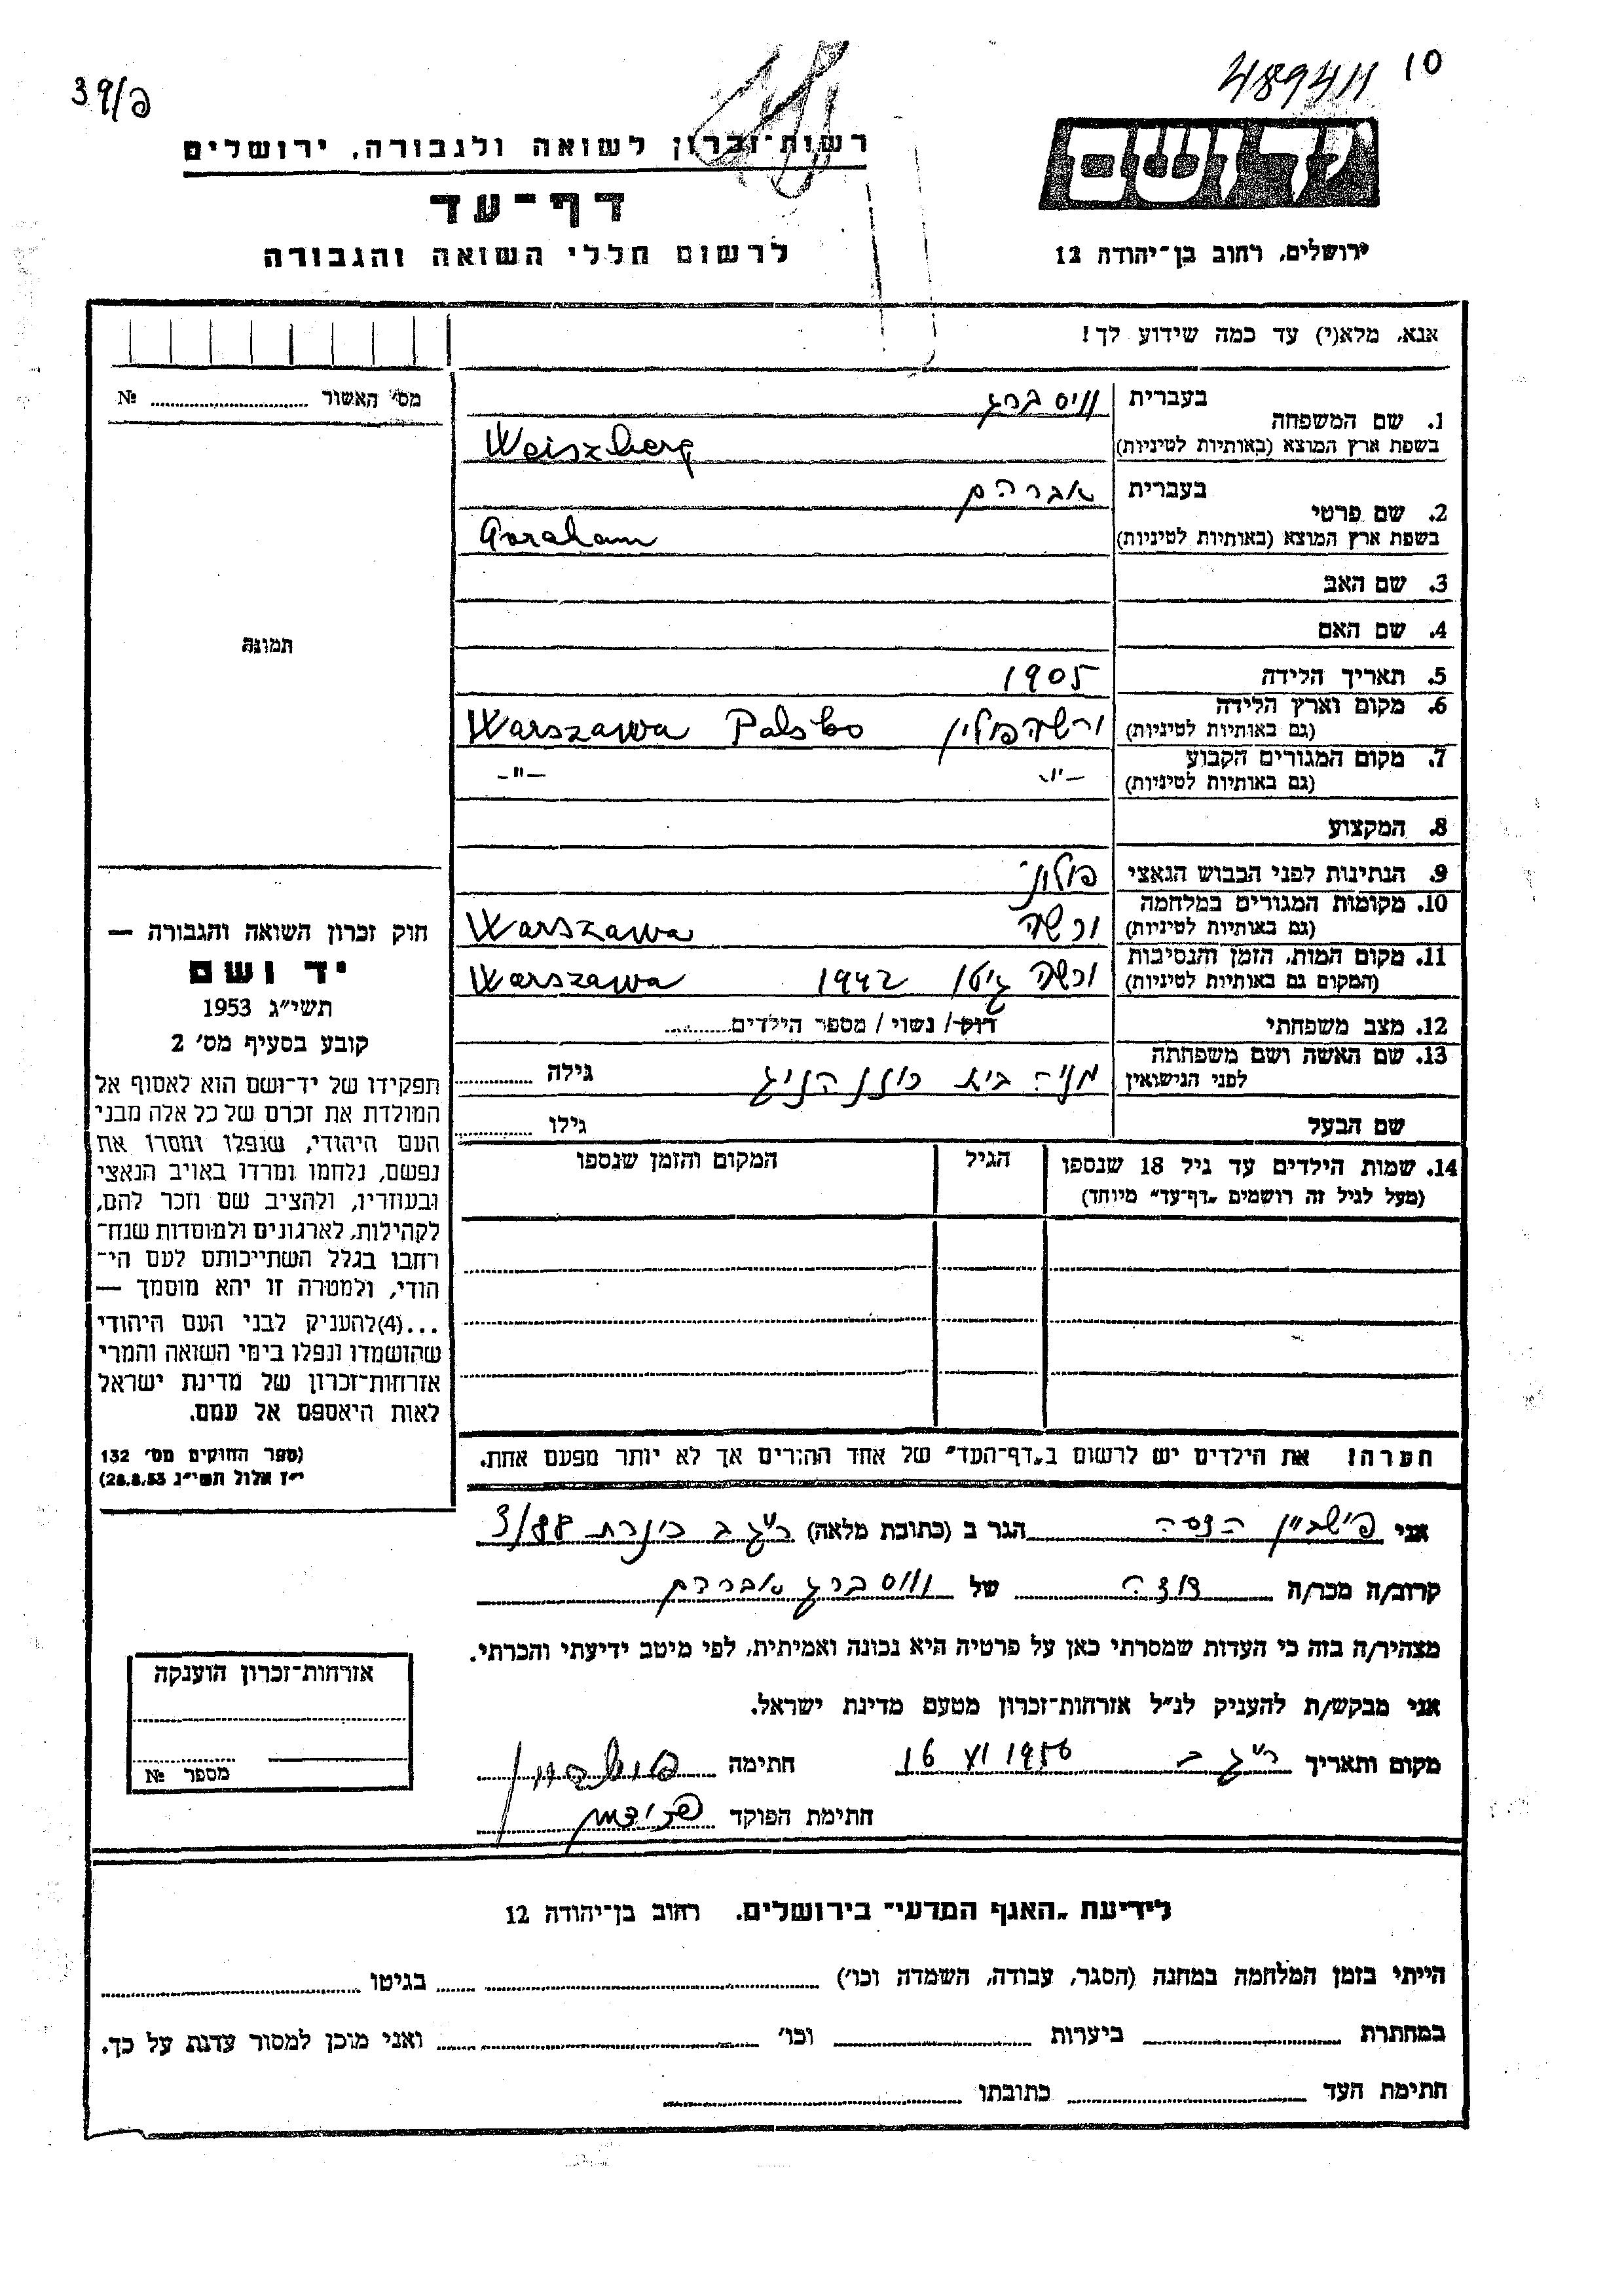 39/פ
48941110
יד ושם
רשות־זכרון לשואה ולגבורה, ירושלים
דף־עד
לרשום חללי השואה והגבורה
ירושלים, רחוב בן־יהודה 12
אנא, מלא(י) עד כמה שידוע לך!
מס׳ האשור № ........
תמונה
1. שם המשפחה
בעברית וויסברג
בשפת ארץ המוצא (באותיות לטיניות) Weiszberg
2. שם פרטי
בעברית אברהם
בשפת ארץ המוצא (באותיות לטיניות)
3. שם האב
4. שם האם
5. תאריך הלידה 1905
6. מקום וארץ הלידה
(גם באותיות לטיניות) ורשה פולין Warszawa Polska
7. מקום המגורים הקבוע
(גם באותיות לטיניות) -"- -"-
8. המקצוע
9. הנתינות לפני הכבוש הנאצי פולני
10. מקומות המגורים במלחמה
(גם באותיות לטיניות) ורשה Warszawa
11. מקום המות, הזמן והנסיבות
(המקום גם באותיות לטיניות) ורשה גיטו 1942 Warszawa
12. מצב משפחתי רווק / נשוי / מספר הילדים........
13. שם האשה ושם משפחתה
לפני הנישואין מניה בית גילה ........
שם הבעל גילו ........
14. שמות הילדים עד גיל 18 שנספו
(מעל לגיל זה רושמים „דף־עד״ מיוחד)
הגיל
המקום והזמן שנספו
הערה! את הילדים יש לרשום ב„דף־העד״ של אחד ההורים אך לא יותר מפעם אחת.
חוק זכרון השואה והגבורה —
יד ושם
תשי״ג 1953
קובע בסעיף מס׳ 2
תפקידו של יד־ושם הוא לאסוף אל
המולדת את זכרם של כל אלה מבני
העם היהודי, שנפלו ומסרו את
נפשם, נלחמו ומרדו באויב הנאצי
ובעוזריו, ולהציב שם וזכר להם,
לקהילות, לארגונים ולמוסדות שנח־
רחבו בגלל השתייכותם לעם הי־
הודי, ולמטרה זו יהא מוסמך —
...(4)להעניק לבני העם היהודי
שהושמדו ונפלו בימי השואה והמרי
אזרחות־זכרון של מדינת ישראל
לאות היאספם אל עמם.
(ספר החוקים מס׳ 132
י״ז אלול תשי״ג 28.8.53)
אני פישביין הדסה הגר ב (כתובת מלאה) ר״ג ב 3/88
קרוב/ה מכר/ה דודה של וויסברג אברהם
מצהיר/ה בזה כי העדות שמסרתי כאן על פרטיה היא נכונה ואמיתית, לפי מיטב ידיעתי והכרתי.
אני מבקש/ת להעניק לנ״ל אזרחות־זכרון מטעם מדינת ישראל.
מקום ותאריך ר״ג ב 16 XI 1956 חתימה
חתימת הפוקד
אזרחות־זכרון הוענקה
מספר №
לידיעת „האגף המדעי״ בירושלים, רחוב בן־יהודה 12
הייתי בזמן המלחמה במחנה (הסגר, עבודה, השמדה וכו׳) ........ בגיטו ........
במחתרת ........ ביערות ........ וכו׳ ........ ואני מוכן למסור עדות על כך.
חתימת העד ........ כתובתו ........